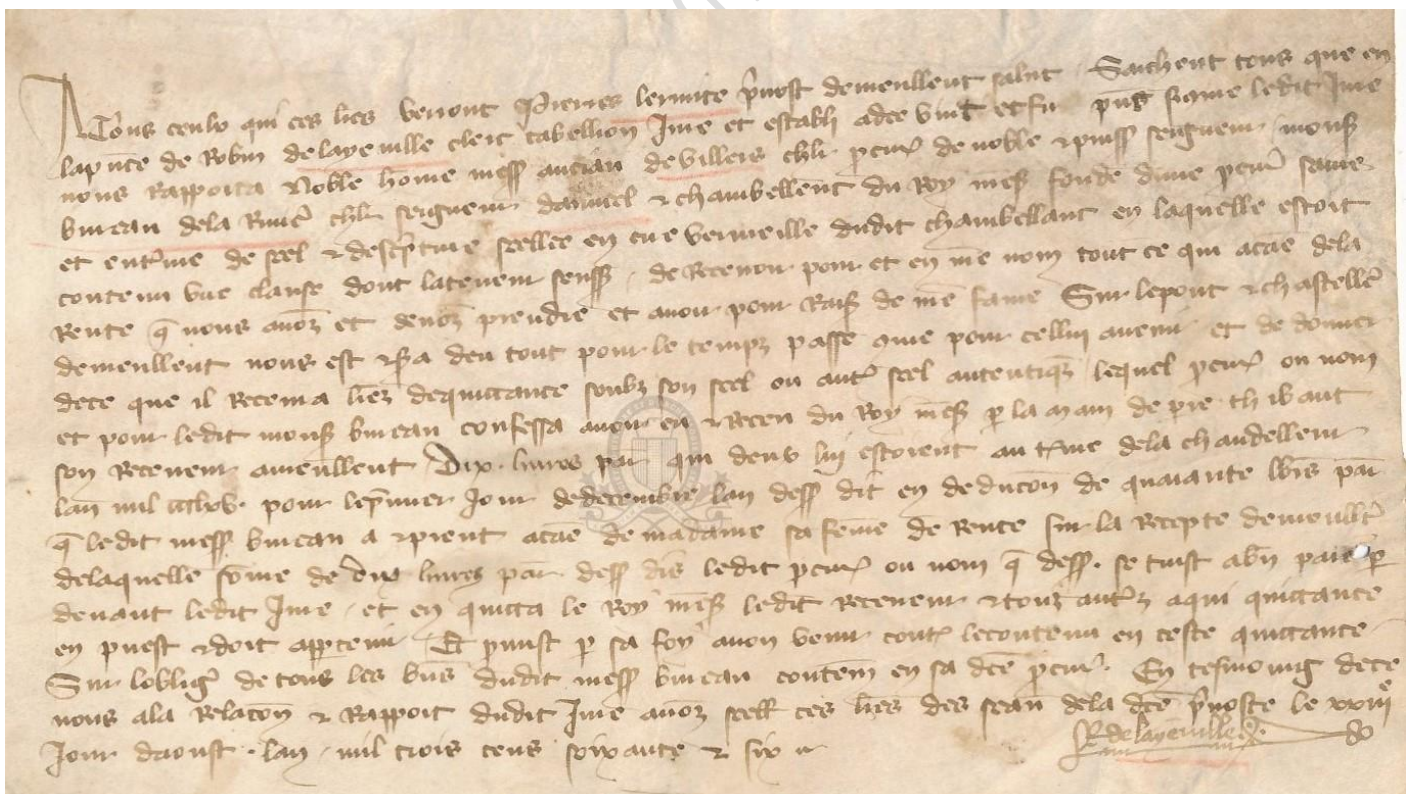 A Tous ceulx qui ces lres verront Pierres lermite pvost demeullent salut. Saichent tous que en
la pnce de Robin delayeville clerc tabellion Jure et establi adce vint et fu pns sicome ledit Jure
nous Rapporta Noble home mess ancian devillers chlr pcur de noble & puiss seigneur mons
bureau dela Riviere chlr seigneur dauneel & chambellent du Roy nres fonde dune pcur saine
et entiere de seel & descpture seellee en cire vermeille dudit chambellant en laquelle estoit
contenu une clause dont lateneur sensss de Recevoir pour et en nre nom tout ce qui acae dela
Rente q nous avoz et devoz prendre et avoir pour Rais de nre fame Sur lepont & chastellie
demeullent nous est & sa deu tout pour le temps passe come pour cellui avenir et de donner
dece que il Recevra lres dequittance soubz son seel ou autre seel autentiq lequel pcur ou nom
et pour ledit mons bureau confessa avoir eu & Receu du Roy nres p la main de pre thibaut
son Receveur ameullent Dix livres par qui deuz lui estoient au tme dela chandelleur
lan mil ccclxv. pour le pmier Jour dedecembre lan dess dit en deducon de quarante lbrs par
q ledit mess bureau a & prent acae de madame sa feme de Rente sur la Recepte demeullt
delaquelle some de dix livres par dess dis ledit pcur ou nom q dess. se tint abn paie p
devant ledit Jure et en quitta le Roy nres ledit Receveur & touz autrs aqui quittance
en puest & doit appteni Et pmist p sa foy anon venir contre lecontenu en ceste quittance
Sur loblig de tous les bns dudit mess bureau contem en sa dce pcur. En tesmoing dece
nous ala Relacon & Rapport dudit Jure avoz seell ces lres des seaux dela dce pvoste le xxiii e
Jour daoust. lan mil trois cens soixante & six
R delayeville